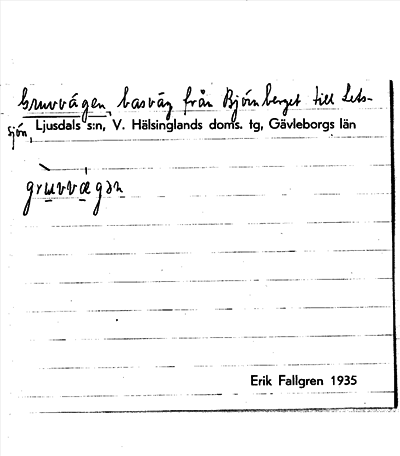 Gruvvägen, basväg från Björnberget till Lets-
sjön,
Ljusdals s:n, V. Hälsinglands doms. tg, Gävleborgs län
gruvvägən
Erik Fallgren 1935